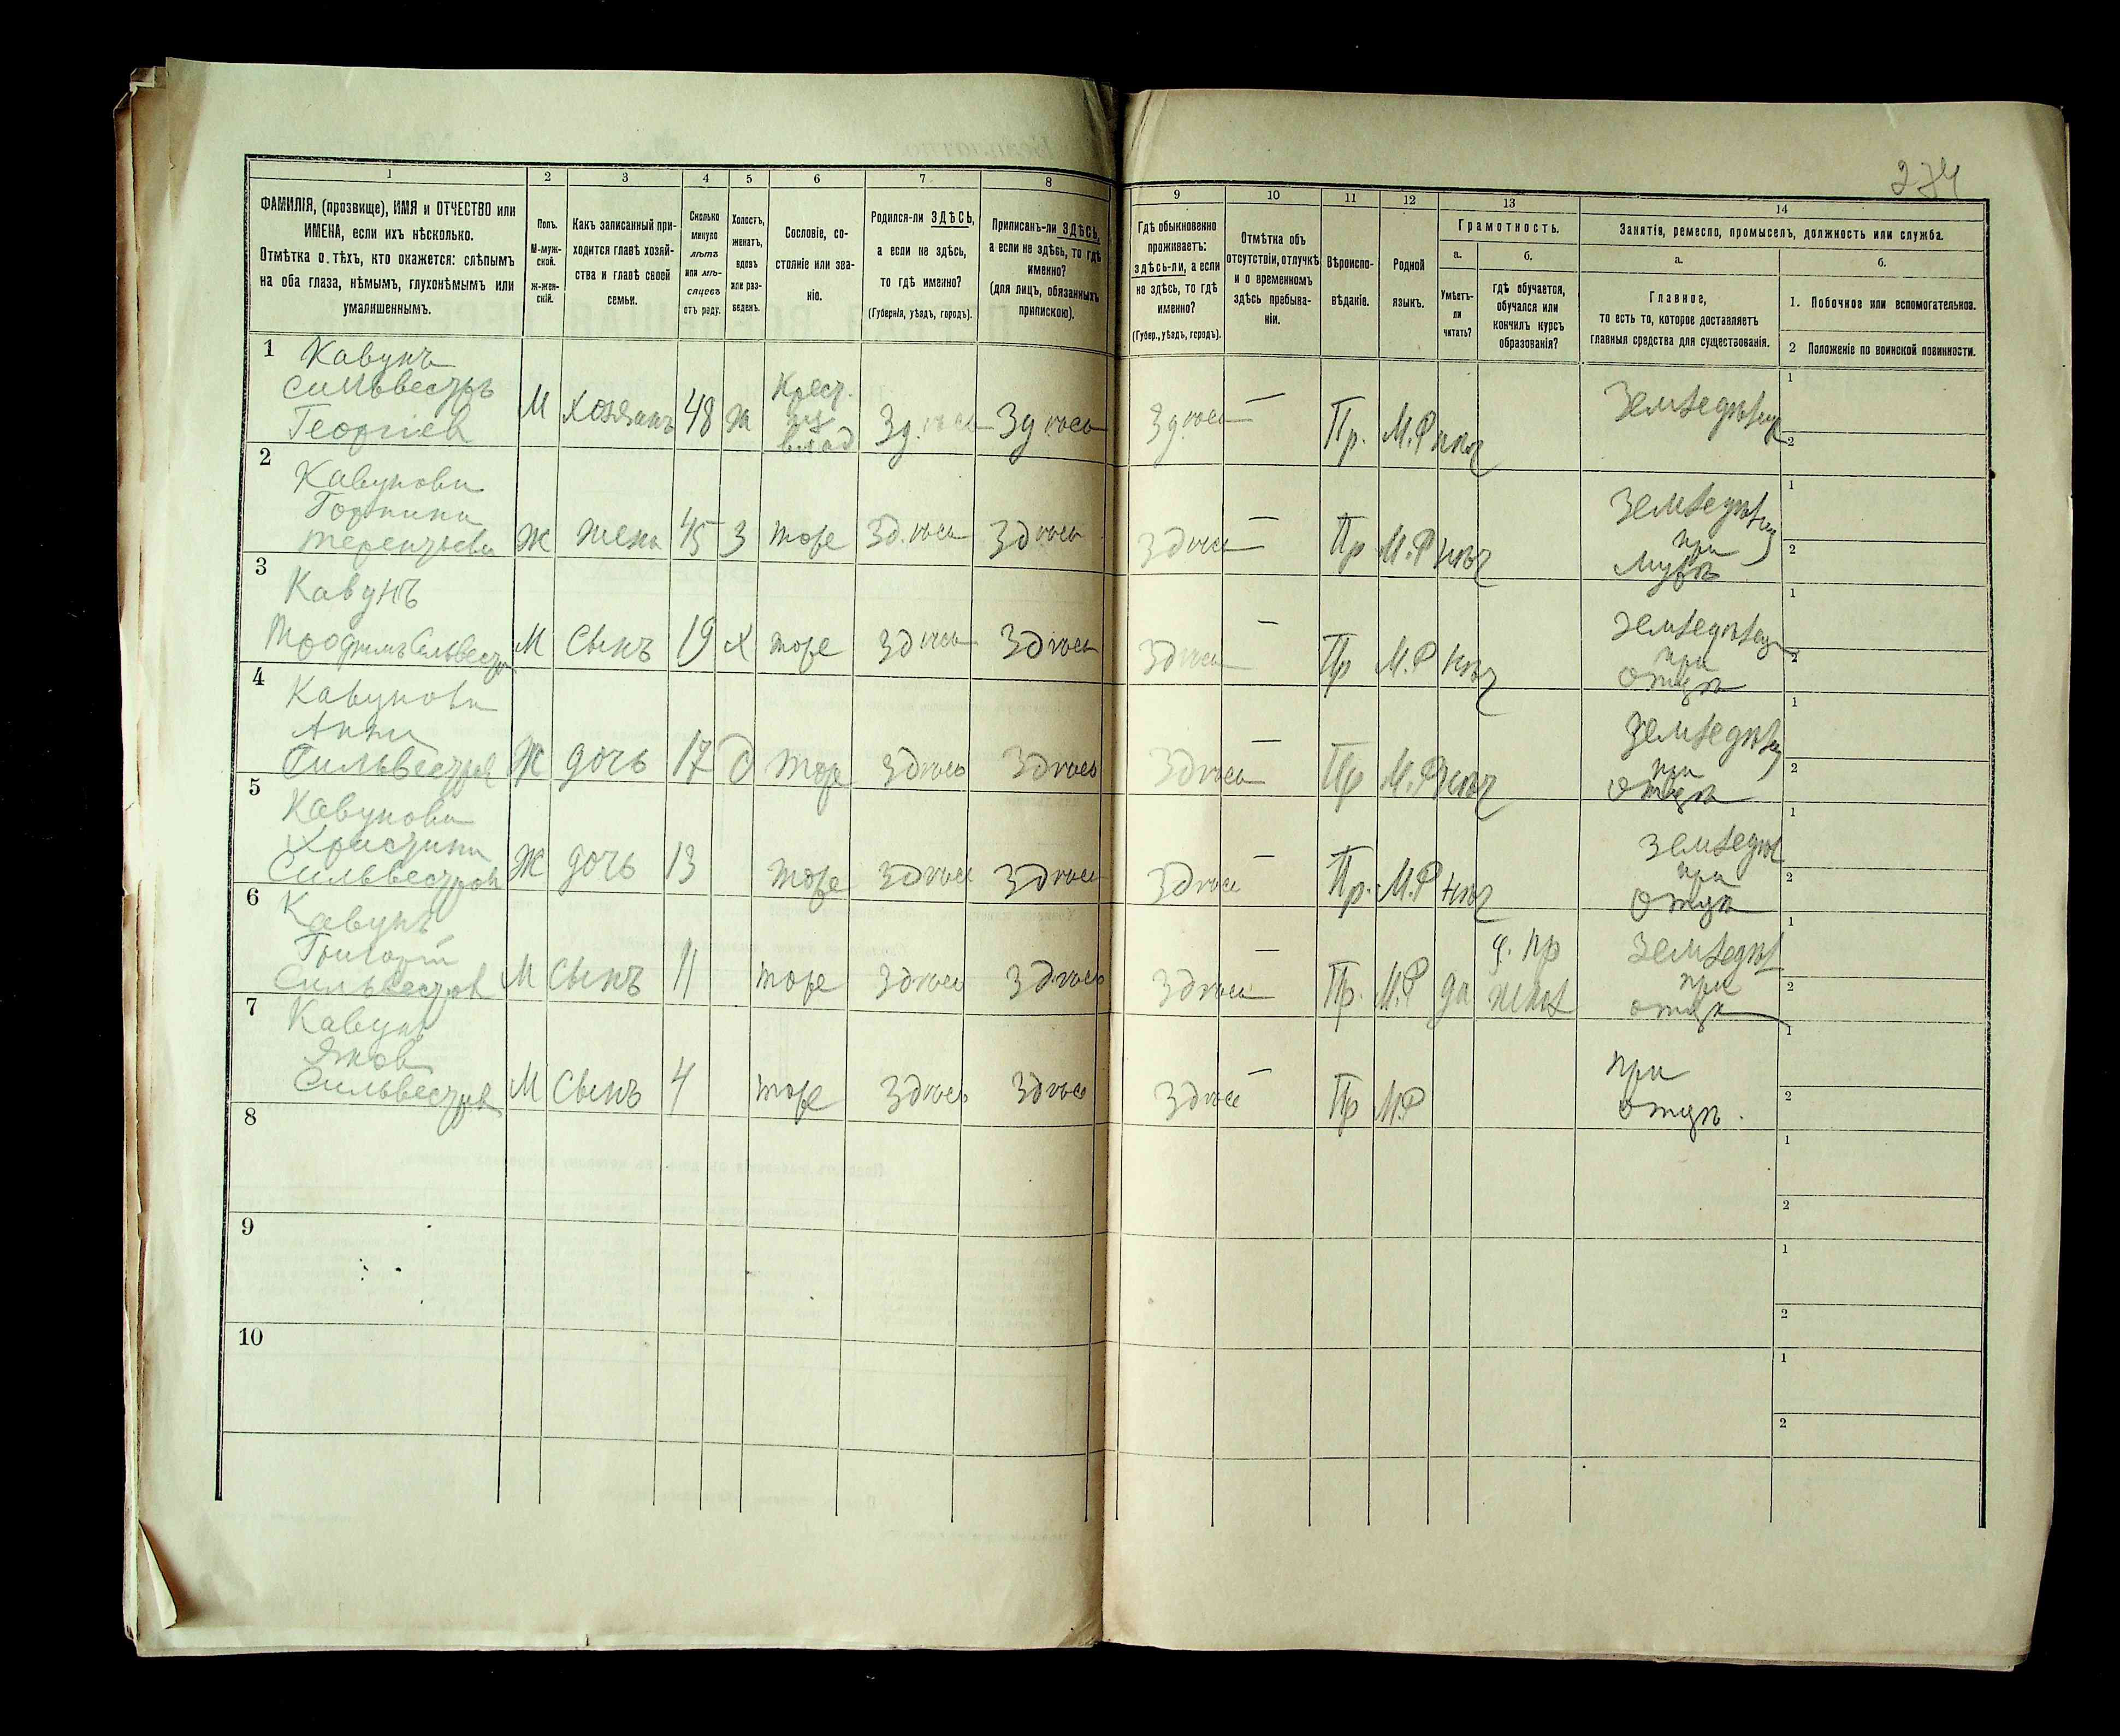 274
1
2
3
4
5
6
7
8
9
10
11
12
13
14
ФАМИЛІЯ, (прозвище), ИМЯ и ОТЧЕСТВО или
ИМЕНА, если ихъ нѣсколько.
Отмѣтка о тѣхъ, кто окажется: слѣпымъ
на оба глаза, нѣмымъ, глухонѣмымъ или
умалишеннымъ.
Полъ.
М-муж-
ской.
ж-жен-
скій.
Какъ записанный при-
ходится главѣ хозяй-
ства и главѣ своей
семьи.
Сколько
минуло
лѣтъ
или мѣ-
сяцевъ
отъ роду.
Холостъ,
женатъ,
вдовъ
или раз-
веденъ.
Сословіе, со-
стояніе или зва-
ніе.
Родился-ли ЗДѢСЬ,
а если не здѣсь,
то гдѣ именно?
(Губернія, уѣздъ, городъ).
Приписанъ-ли ЗДѢСЬ,
а если не здѣсь, то гдѣ
именно?
(для лицъ, обязанныхъ
припискою).
Гдѣ обыкновенно
проживаетъ:
здѣсь-ли, а если
не здѣсь, то гдѣ
именно?
(Губер., уѣздъ, городъ).
Отмѣтка объ
отсутствіи, отлучкѣ
и о временномъ
здѣсь пребыва-
ніи.
Вѣроиспо-
вѣданіе.
Родной
языкъ.
Грамотность.
а.
Умѣетъ-
ли
читать?
б.
гдѣ обучается,
обучался или
кончилъ курсъ
образованія?
Занятія, ремесло, промыселъ, должность или служба.
а.
Главное,
то есть то, которое доставляетъ
главныя средства для существованія.
б.
1. Побочное или вспомогательное.
2 Положеніе по воинской повинности.
1
Кавунъ
Сильвестръ
Георгіев
М Хозяинъ 48 ж
Крест.
из
влад
Здѣсь Здѣсь Здѣсь — Пр. М.Р нѣт
Земледѣлец
1
2
2
Кавунова
Горпина
Терентьева
Ж жена 45 З тоже Здѣсь Здѣсь Здѣсь — Пр М.Р нѣт
Земледѣлец
при
мужѣ
1
2
3
Кавунъ
Трофимъ Сильвестр
М сынъ 19 Х тоже Здѣсь Здѣсь Здѣсь — Пр М.Р нѣт
Земледѣлец
при
отцѣ
1
2
4
Кавунова
Анна
Сильвестров
Ж дочь 17 д тоже Здѣсь Здѣсь Здѣсь — Пр М.Р нѣт
Земледѣлец
при
отцѣ
1
2
5
Кавунова
Христина
Сильвестров
Ж дочь 13 тоже Здѣсь Здѣсь Здѣсь — Пр. М.Р нѣт
Земледѣл
при
отцѣ
1
2
6
Кавунъ
Григорій
Сильвестров
М сынъ 11 тоже Здѣсь Здѣсь Здѣсь — Пр. М.Р да
Земледѣл
при
отцѣ
1
2
7
Кавунъ
Яков
Сильвестров
М сынъ 4 тоже Здѣсь Здѣсь Здѣсь — Пр М.Р
при
отцѣ.
1
2
8
1
2
9
1
2
10
1
2